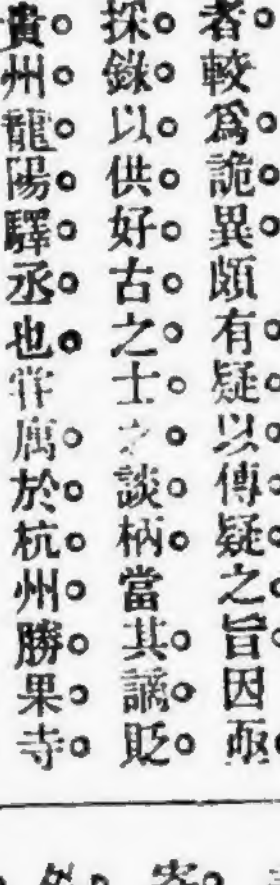 者較爲詭異頗有疑以傳疑之旨因亟
採錄以供好古之士之談柄當其謫貶
貴州龍陽驛丞也嘗寓於杭州勝果寺